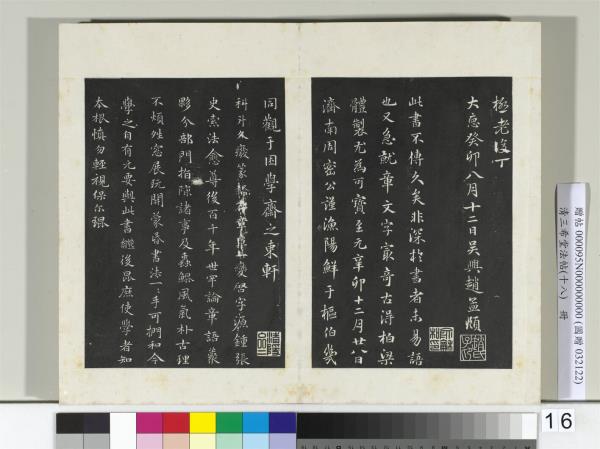 極老後丁
大德癸卯八月十二日吳興趙孟頫
此書不傳久矣非深於書者未易語
也又急就章文字最奇古得柏梁
體製尤為可寶至元辛卯十二月廿八日
濟南周密公謹漁陽鮮于樞伯幾
同觀于困學齋之東軒
科斗久廢篆
變啓字源鍾張
史索法愈尊後百千年世罕論章語篆
夥分部門指陳諸事及
風氣朴古理
不煩姓
展玩開蒙昏書法一一手可捫和今
學之自有元要與此書繼後昆庶使學者知
本根慎勿輕視保尔琨
贈帖 000095N000000000 (國贈 032122)
清三希堂法帖(十八) 冊
16